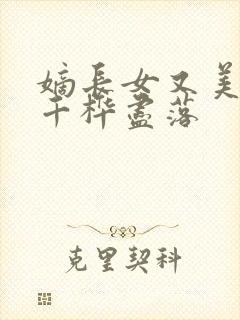 嫡長女又美
千樺盡落
克里契科